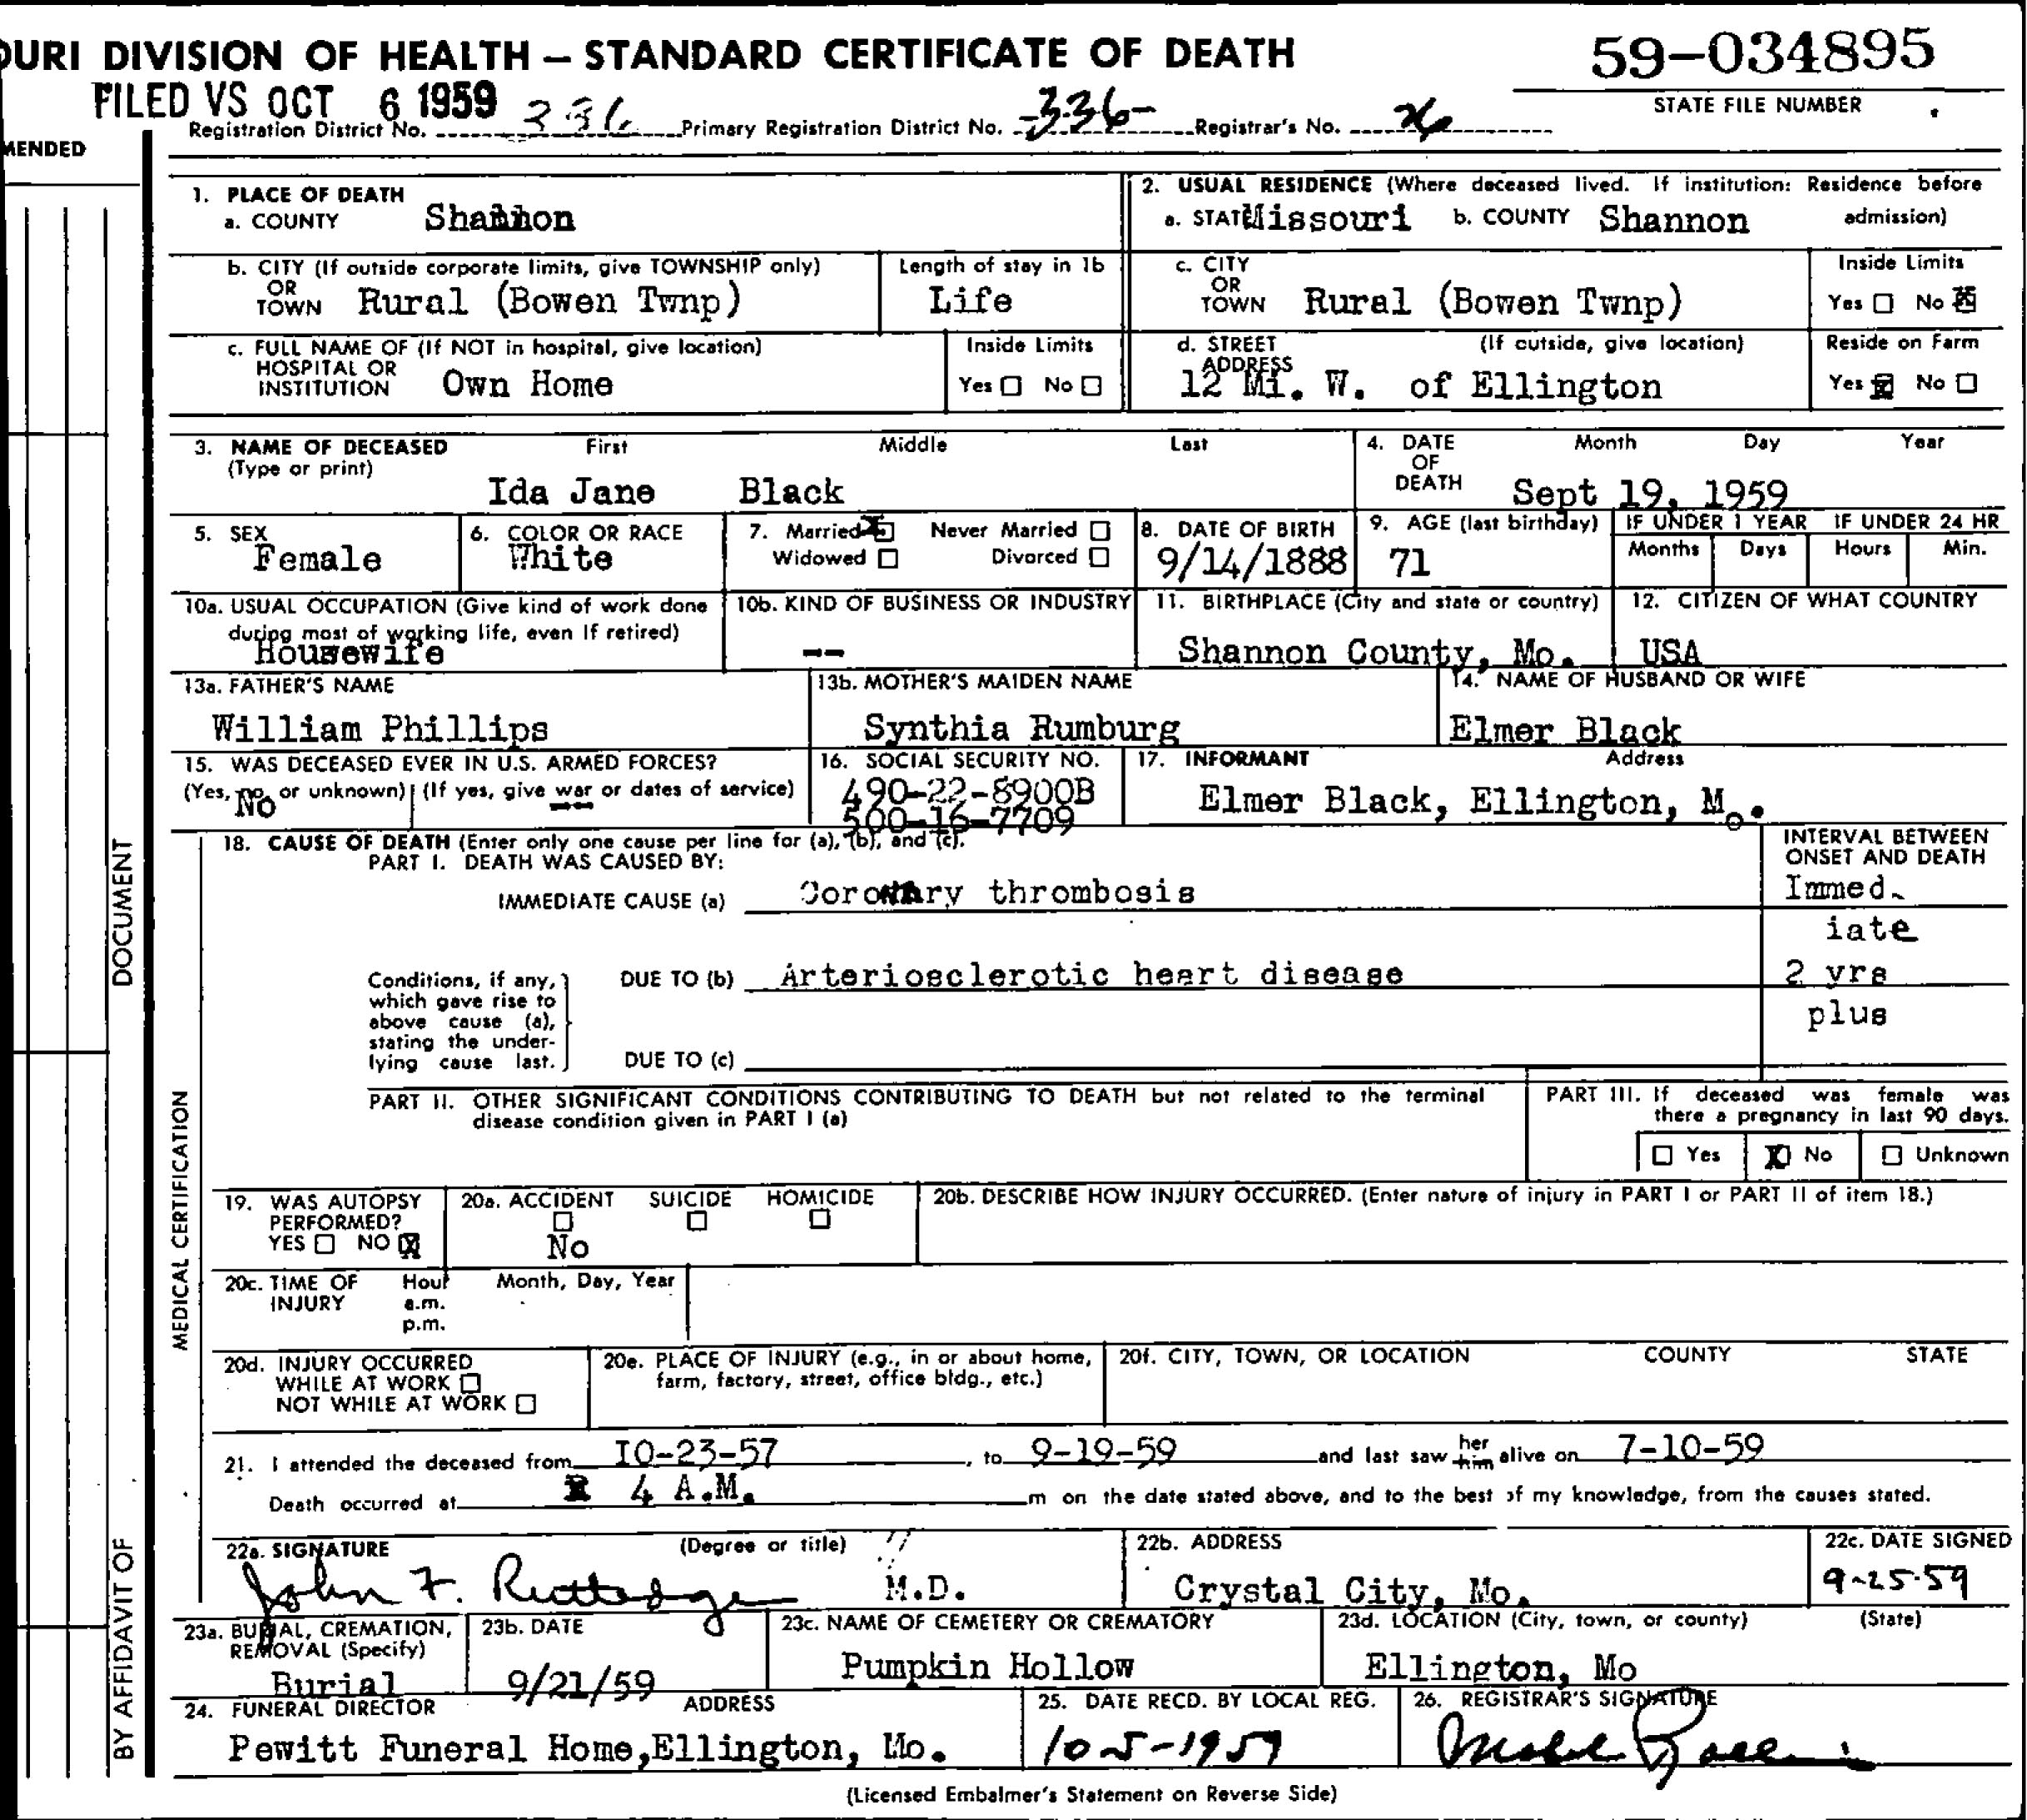 OURI DIVISION OF HEALTH — STANDARD CERTIFICATE OF DEATH
59-034895
FILED VS OCT 6 1959
STATE FILE NUMBER
Registration District No. 336 Primary Registration District No. 336 Registrar's No. 26
MENDED
1. PLACE OF DEATH
a. COUNTY Shannon
2. USUAL RESIDENCE (Where deceased lived. If institution: Residence before admission)
a. STATE Missouri b. COUNTY Shannon
b. CITY (If outside corporate limits, give TOWNSHIP only)
OR TOWN Rural (Bowen Twnp)
Length of stay in 1b
Life
c. CITY OR TOWN Rural (Bowen Twnp)
Inside Limits
Yes No X
c. FULL NAME OF (If NOT in hospital, give location)
HOSPITAL OR INSTITUTION Own Home
Inside Limits
Yes No
d. STREET ADDRESS (If outside, give location)
12 Mi. W. of Ellington
Reside on Farm
Yes X No
3. NAME OF DECEASED First Middle Last
(Type or print)
Ida Jane Black
4. DATE OF DEATH Month Day Year
Sept 19, 1959
5. SEX
Female
6. COLOR OR RACE
White
7. Married X Never Married
Widowed Divorced
8. DATE OF BIRTH
9/14/1888
9. AGE (last birthday)
71
IF UNDER 1 YEAR IF UNDER 24 HR
Months Days Hours Min.
10a. USUAL OCCUPATION (Give kind of work done
during most of working life, even if retired)
Housewife
10b. KIND OF BUSINESS OR INDUSTRY
--
11. BIRTHPLACE (City and state or country)
Shannon County, Mo.
12. CITIZEN OF WHAT COUNTRY
USA
13a. FATHER'S NAME
William Phillips
13b. MOTHER'S MAIDEN NAME
Synthia Rumburg
14. NAME OF HUSBAND OR WIFE
Elmer Black
15. WAS DECEASED EVER IN U.S. ARMED FORCES?
(Yes, no, or unknown) (If yes, give war or dates of service)
No --
16. SOCIAL SECURITY NO.
490-22-8900B
500-16-7709
17. INFORMANT Address
Elmer Black, Ellington, Mo.
18. CAUSE OF DEATH (Enter only one cause per line for (a), (b), and (c).
PART I. DEATH WAS CAUSED BY:
INTERVAL BETWEEN
ONSET AND DEATH
IMMEDIATE CAUSE (a) Coronary thrombosis
Immed.
iate
Conditions, if any,
which gave rise to
above cause (a),
stating the under-
lying cause last.
DUE TO (b) Arteriosclerotic heart disease
2 yrs
plus
DUE TO (c)
PART II. OTHER SIGNIFICANT CONDITIONS CONTRIBUTING TO DEATH but not related to the terminal
disease condition given in PART I (a)
PART III. If deceased was female was
there a pregnancy in last 90 days.
Yes X No Unknown
19. WAS AUTOPSY
PERFORMED?
YES NO X
20a. ACCIDENT SUICIDE HOMICIDE
No
20b. DESCRIBE HOW INJURY OCCURRED. (Enter nature of injury in PART I or PART II of item 18.)
20c. TIME OF INJURY Hour Month, Day, Year
a.m.
p.m.
20d. INJURY OCCURRED
WHILE AT WORK
NOT WHILE AT WORK
20e. PLACE OF INJURY (e.g., in or about home,
farm, factory, street, office bldg., etc.)
20f. CITY, TOWN, OR LOCATION COUNTY STATE
21. I attended the deceased from 10-23-57, to 9-19-59 and last saw her him alive on 7-10-59
Death occurred at 4 A.M. m on the date stated above, and to the best of my knowledge, from the causes stated.
22a. SIGNATURE (Degree or title)
John F. Rutledge M.D.
22b. ADDRESS
Crystal City, Mo.
22c. DATE SIGNED
9-25-59
23a. BURIAL, CREMATION,
REMOVAL (Specify)
Burial
23b. DATE
9/21/59
23c. NAME OF CEMETERY OR CREMATORY
Pumpkin Hollow
23d. LOCATION (City, town, or county) (State)
Ellington, Mo
24. FUNERAL DIRECTOR ADDRESS
Pewitt Funeral Home, Ellington, Mo.
25. DATE RECD. BY LOCAL REG.
10-5-1959
26. REGISTRAR'S SIGNATURE
(Licensed Embalmer's Statement on Reverse Side)
DOCUMENT
MEDICAL CERTIFICATION
BY AFFIDAVIT OF